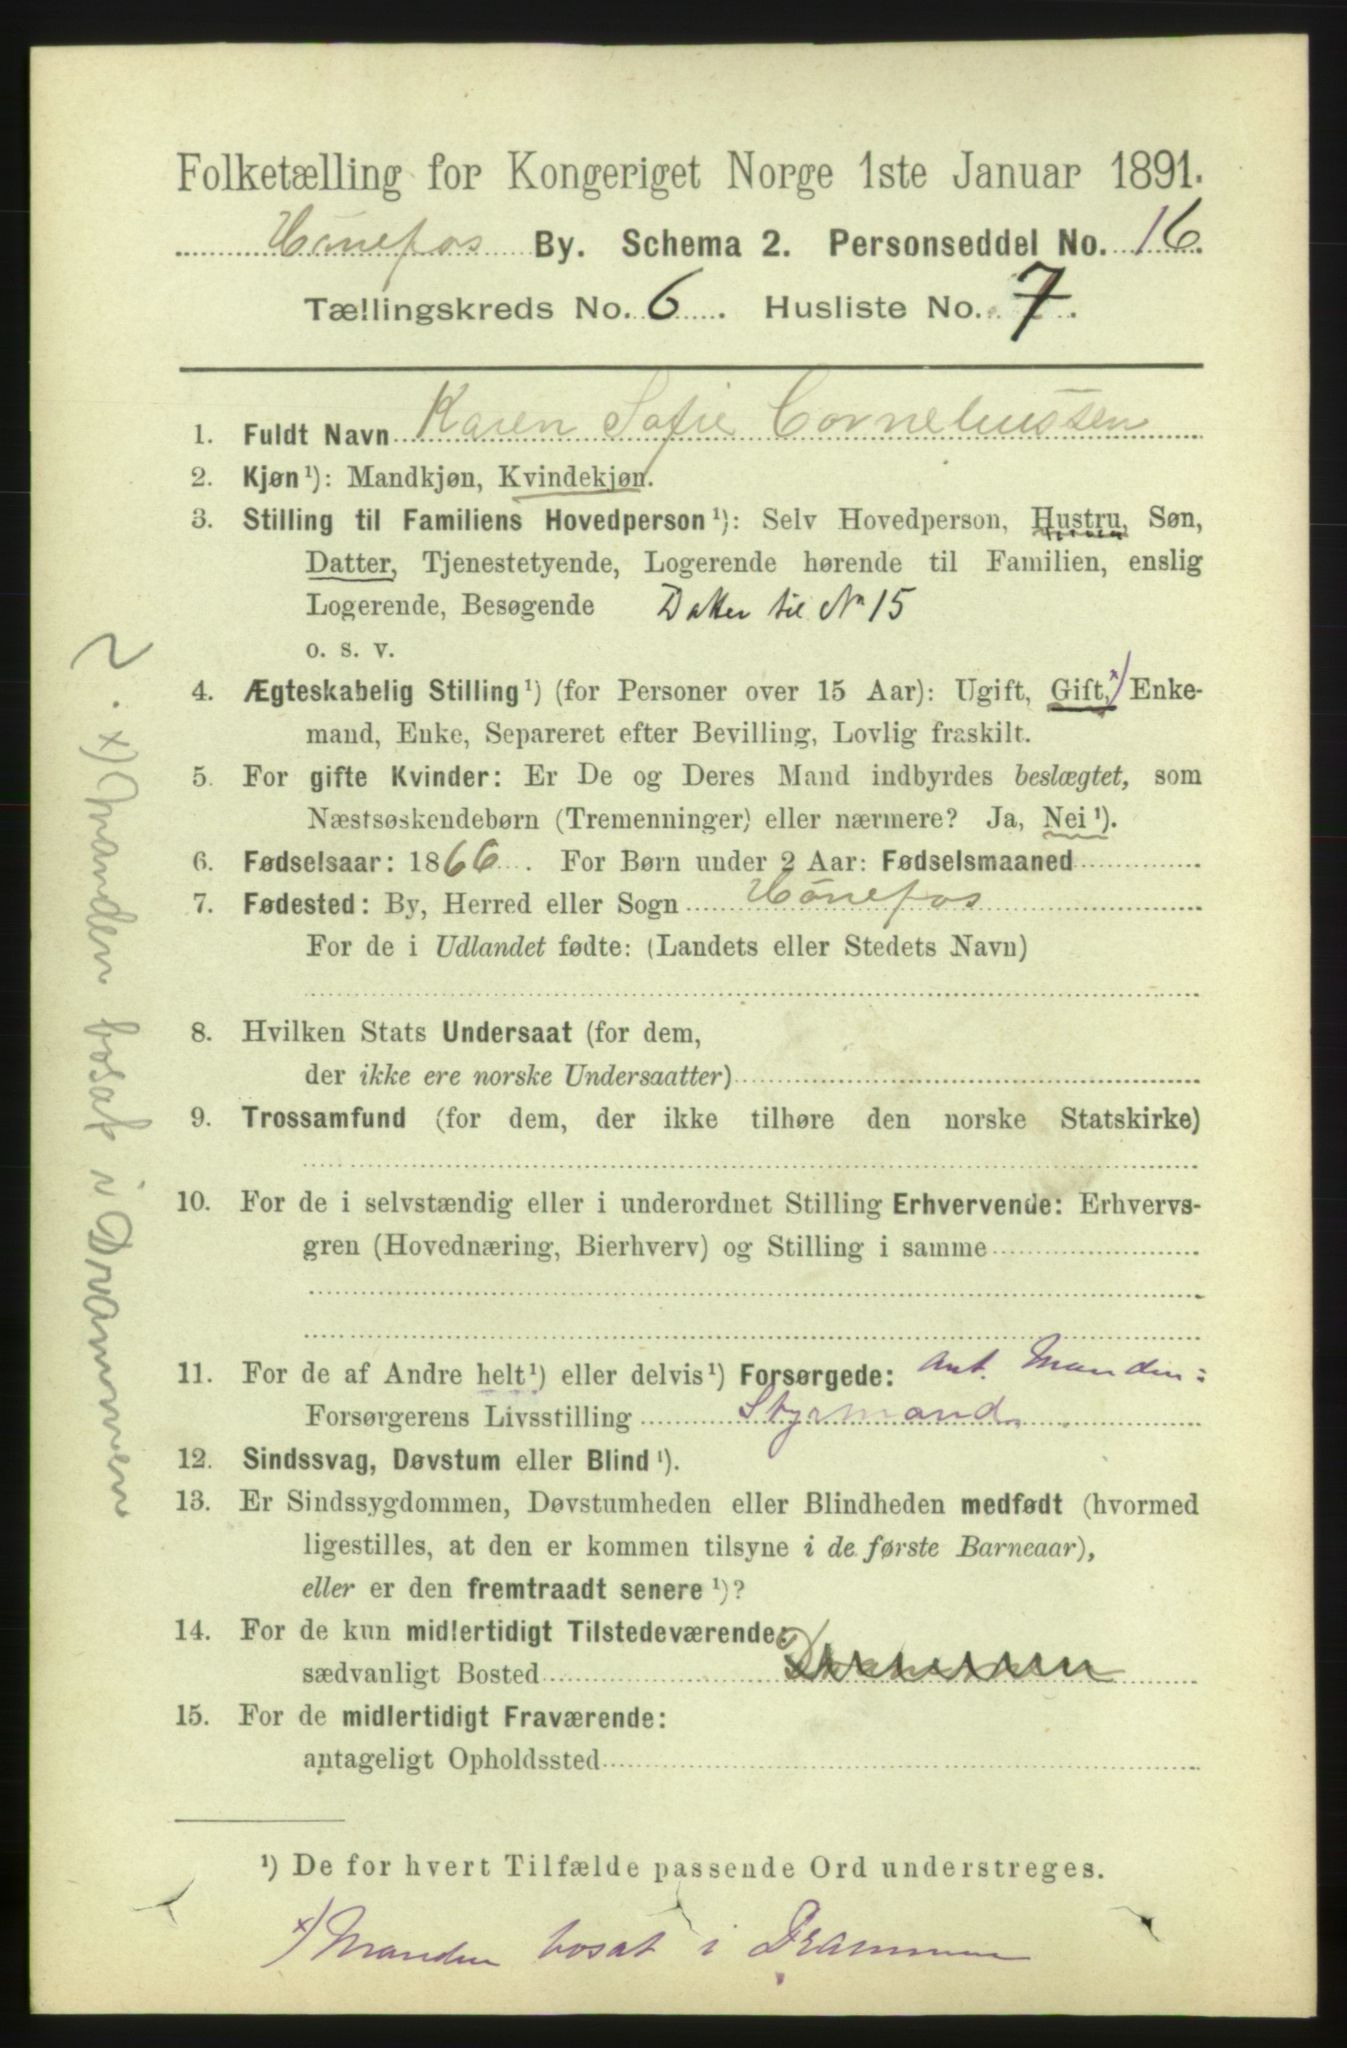 Folketælling for Kongeriget Norge 1ste Januar 1891.
Hönefos By. Schema 2. Personseddel No. 16.
Tællingskreds No. 6. Husliste No. 7.
1. Fuldt Navn Karen Sofie Corneliussen
2. Kjøn ¹): Mandkjøn, Kvindekjøn.
3. Stilling til Familiens Hovedperson ¹): Selv Hovedperson, Hustru, Søn,
Datter, Tjenestetyende, Logerende hørende til Familien, enslig
Logerende, Besøgende Datter til No 15
o. s. v.
4. Ægteskabelig Stilling ¹) (for Personer over 15 Aar): Ugift, Gift, x) Enke-
mand, Enke, Separeret efter Bevilling, Lovlig fraskilt.
5. For gifte Kvinder: Er De og Deres Mand indbyrdes beslægtet, som
Næstsøskendebørn (Tremenninger) eller nærmere? Ja, Nei ¹).
6. Fødselsaar: 1866. For Børn under 2 Aar: Fødselsmaaned
7. Fødested: By, Herred eller Sogn Hönefos
For de i Udlandet fødte: (Landets eller Stedets Navn)
8. Hvilken Stats Undersaat (for dem,
der ikke ere norske Undersaatter)
9. Trossamfund (for dem, der ikke tilhøre den norske Statskirke)
10. For de i selvstændig eller i underordnet Stilling Erhvervende: Erhvervs-
gren (Hovednæring, Bierhverv) og Stilling i samme
11. For de af Andre helt ¹) eller delvis ¹) Forsørgede: Ant. Manden:
Forsørgerens Livsstilling Styrmand
12. Sindssvag, Døvstum eller Blind ¹).
13. Er Sindssygdommen, Døvstumheden eller Blindheden medfødt (hvormed
ligestilles, at den er kommen tilsyne i de første Barneaar),
eller er den fremtraadt senere ¹)?
14. For de kun midlertidigt Tilstedeværende:
sædvanligt Bosted Drammen
15. For de midlertidigt Fraværende:
antageligt Opholdssted
¹) De for hvert Tilfælde passende Ord understreges.
x) Manden bosat i Drammen
2. x) Manden bosat i Drammen